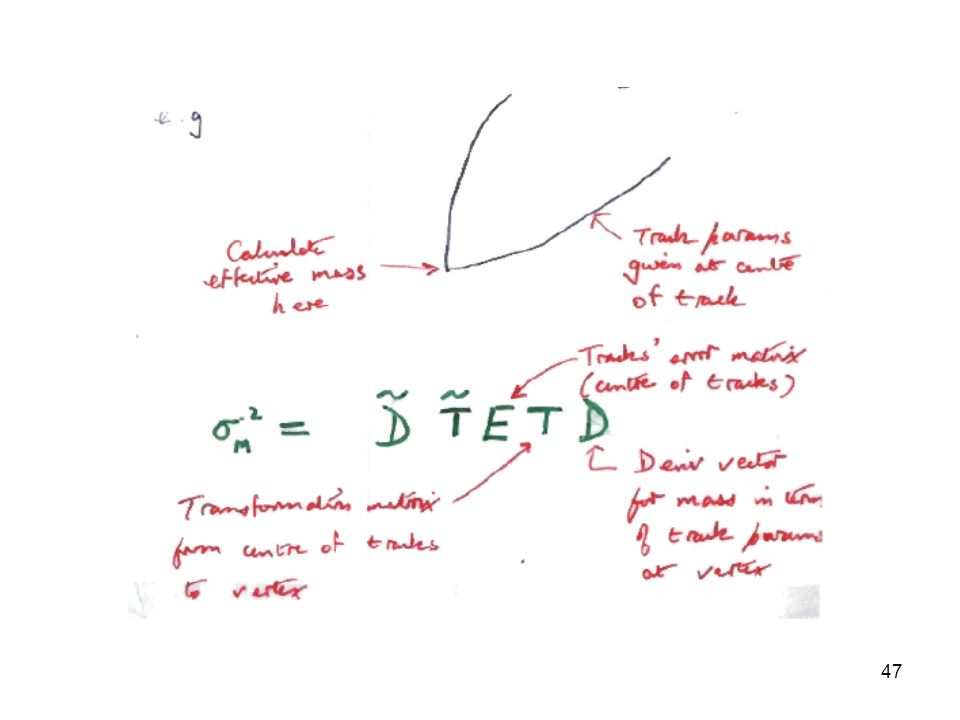 e.g
Calculate
effective mass
here
Track params
given at centre
of track
Tracks' error matrix
(centre of tracks)
σ_M² = D̃ T̃ E T D
Transformation matrix
from centre of tracks
to vertex
Deriv vector
for mass in term
of track params
at vertex
47